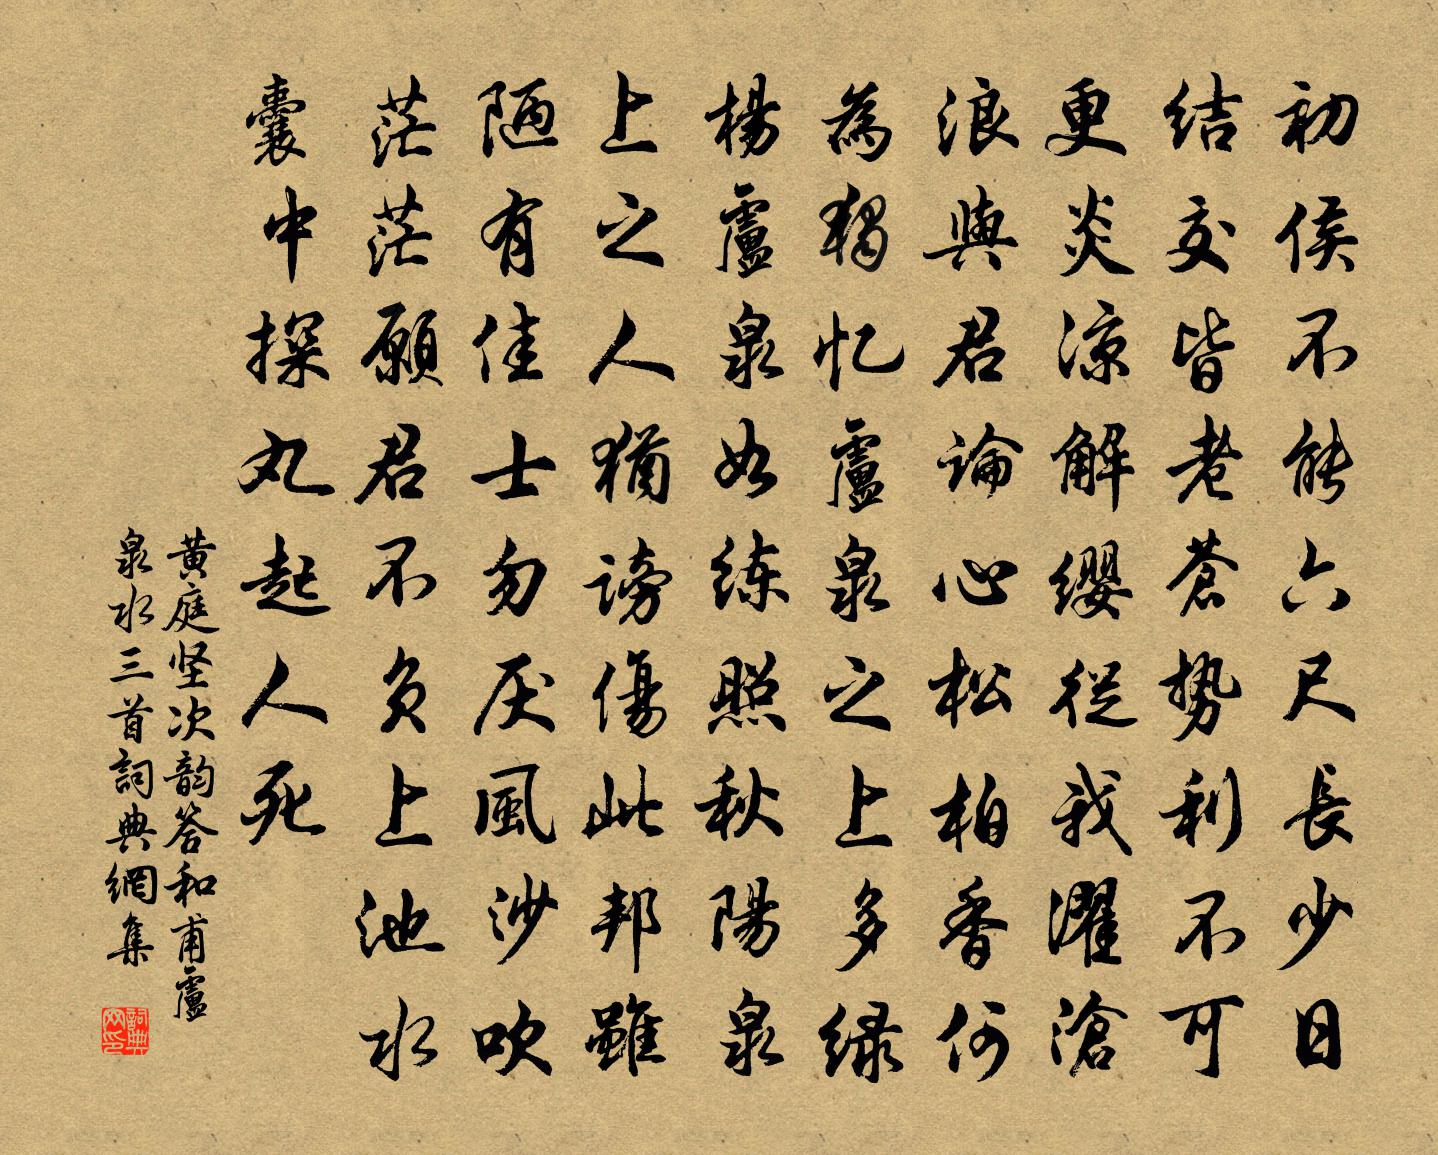 初侯不能六尺長少日
结交皆老蒼勢利不可
更炎涼解缨從我濯滄
浪與君論心松柏香何
為獨忆盧泉之上多緑
楊盧泉如练照秋陽泉
上之人猶謗傷此邦雖
陋有佳士勿厌風沙吹
茫茫願君不負上池水
囊中探丸起人死
黄庭坚次韵答和甫盧
泉水三首詞典網集
詞典网印